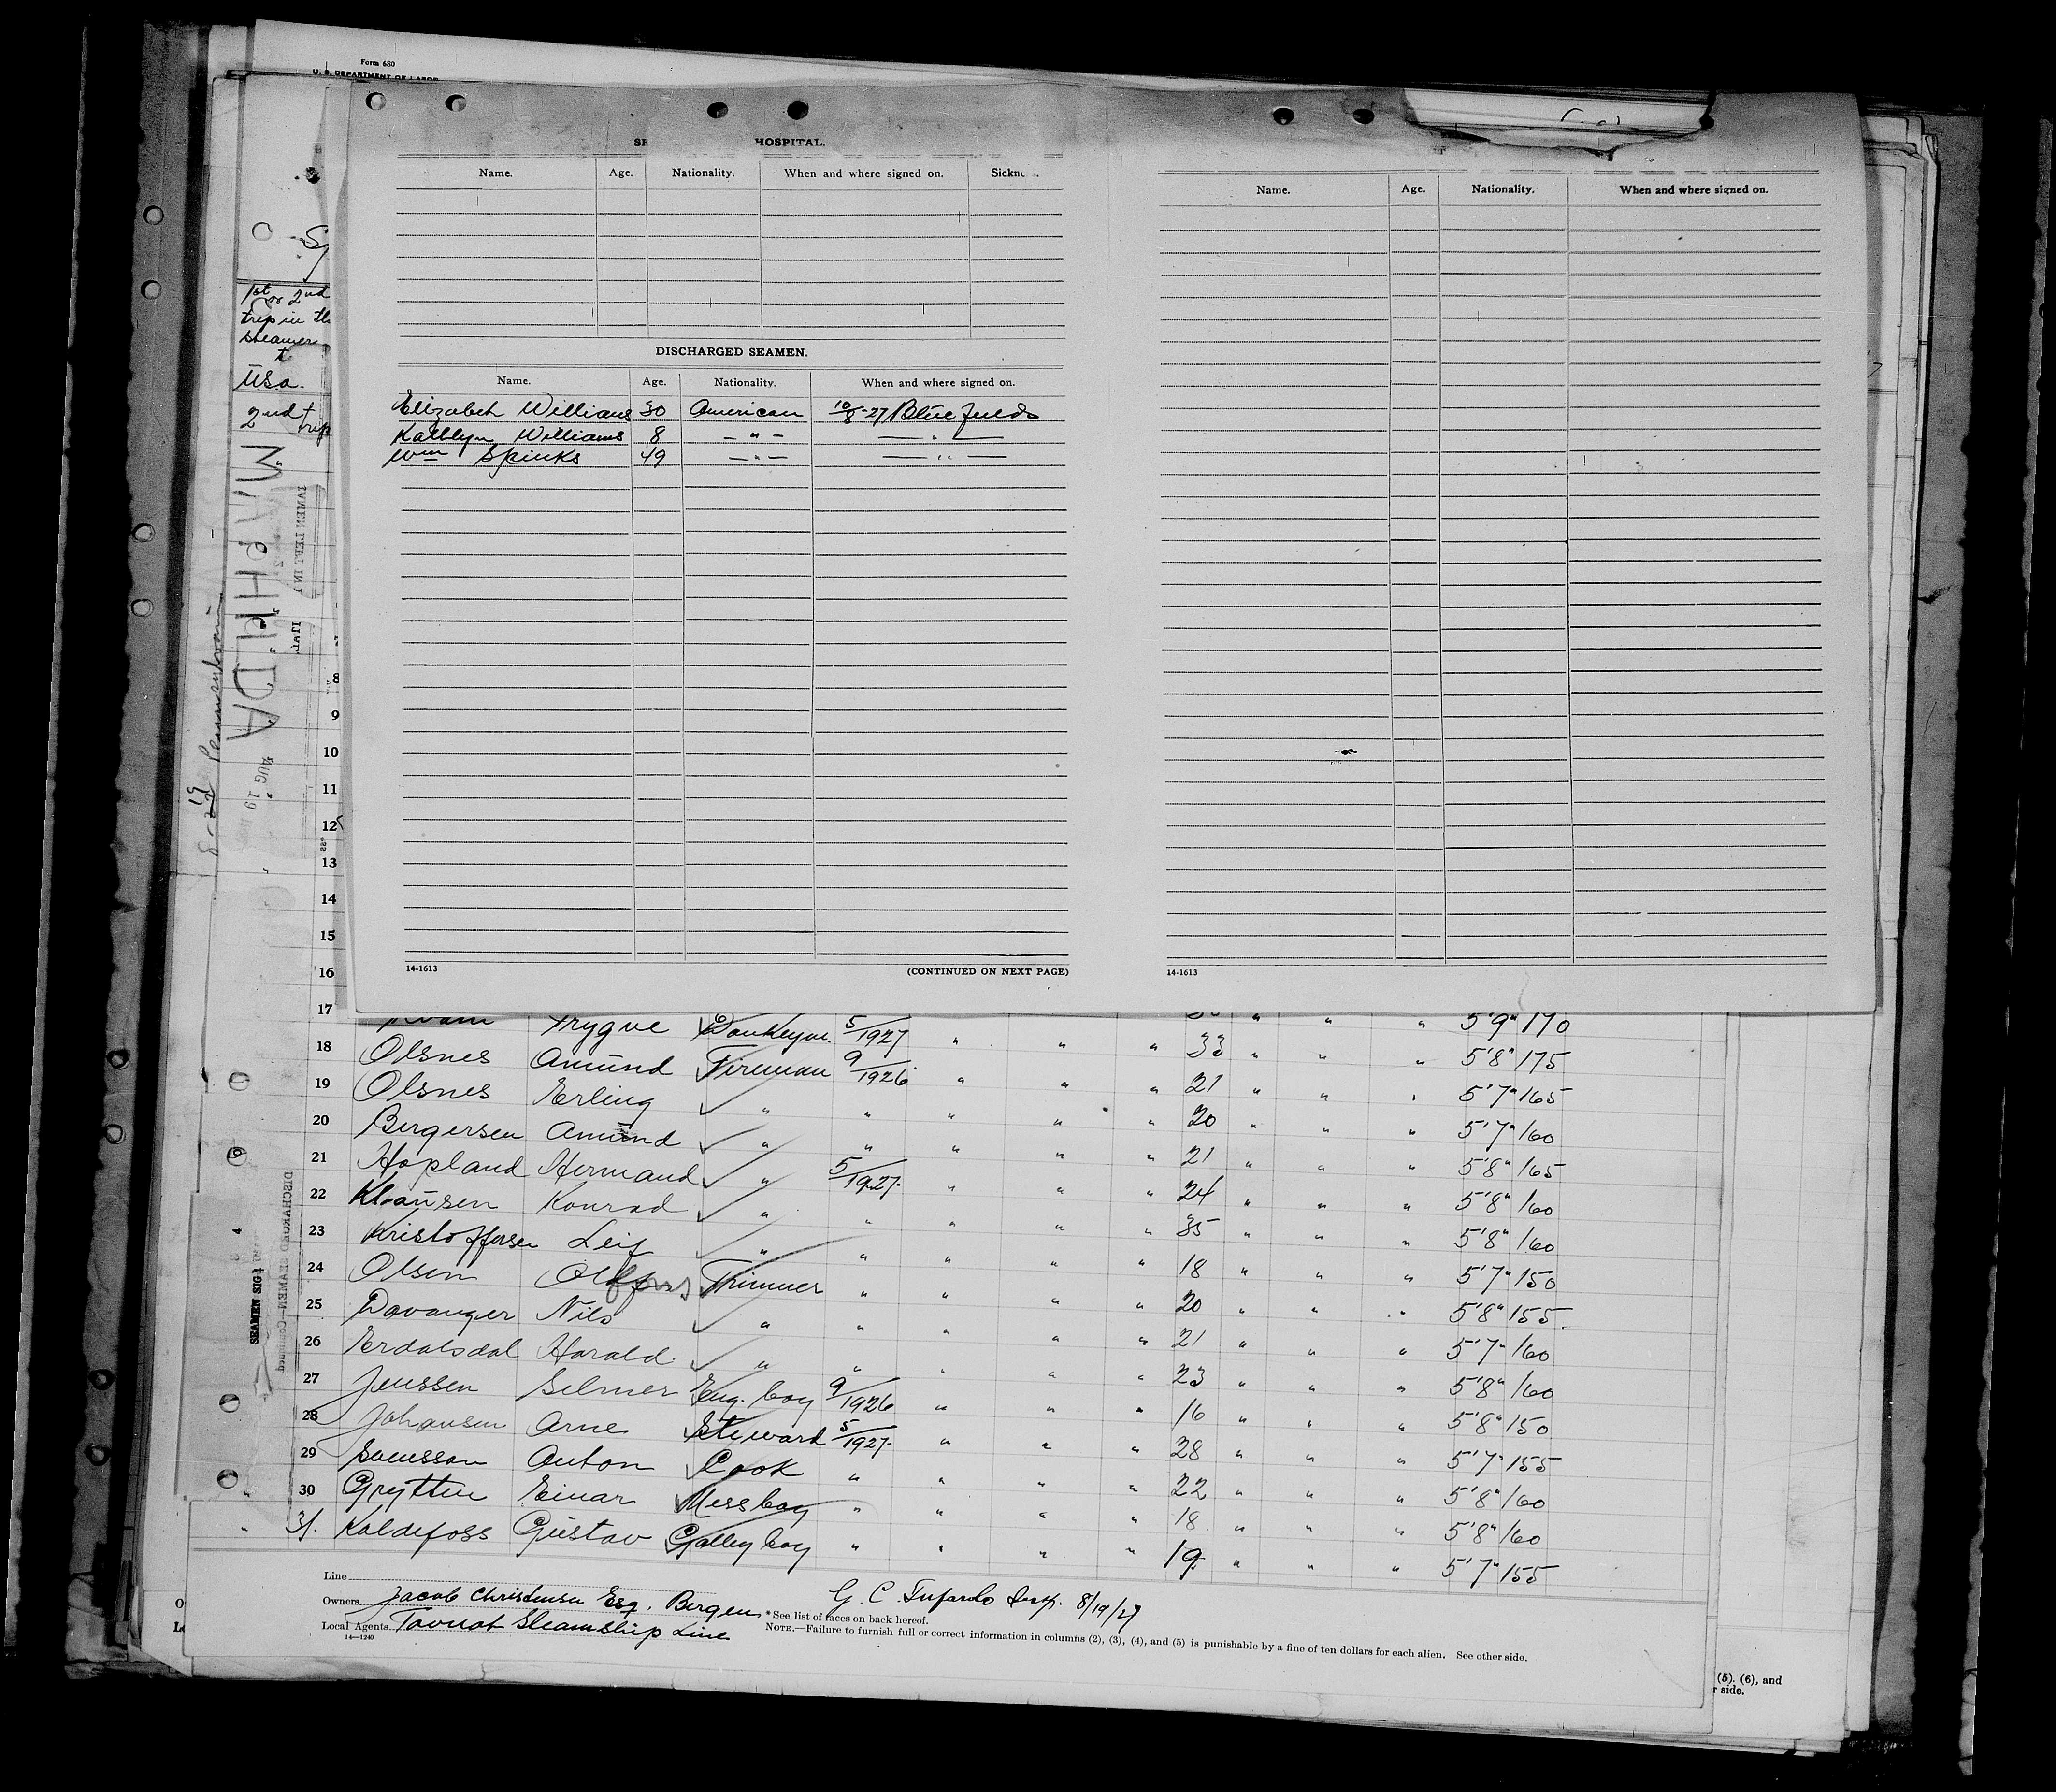 Form 680
U. S. DEPARTMENT OF LABOR
HOSPITAL.
Name. Age. Nationality. When and where signed on.
DISCHARGED SEAMEN.
Name. Age. Nationality. When and where signed on.
Elizabeth Williams 30 American 10/8-27 Bluefields
Kathlyn Williams 8 — " — — " —
Wm Spinks 49 — " — — " —
14-1613 (CONTINUED ON NEXT PAGE)
Name. Age. Nationality. When and where signed on.
14-1613
1st or 2nd
trip in
steamer
U.S.a.
2nd trip
AUG 19
8
9
10
11
12
13
14
15
16
17 Trygve Donkeym. 5/1927 " " " " " " 5'9" 170
18 Olsnes Amund Fireman 9/1926 " " " 33 " " " 5'8" 175
19 Olsnes Erling " " " " " 21 " " " 5'7" 165
20 Bergersen Amund " " " " " 20 " " " 5'7" 160
21 Hopland Hermand " 5/1927 " " " 21 " " " 5'8" 165
22 Klausen Konrad " " " " " 24 " " " 5'8" 160
23 Kristoffersen Leif " " " " " 35 " " " 5'8" 160
24 Olsen Trimmer " " " " 18 " " " 5'7" 150
25 Davanger Nils " " " " " 20 " " " 5'8" 155
26 Erdalsdal Harald " " " " " 21 " " " 5'7" 160
27 Jenssen Selmer Eng. boy 9/1926 " " " 23 " " " 5'8" 160
28 Johansen Arne Steward 5/1927 " " " 16 " " " 5'8" 150
29 Svensson Anton Cook " " " " 28 " " " 5'7" 155
30 Gryttin Einar Messboy " " " " 22 " " " 5'8" 160
31. Kaldefoss Gustav Galley boy " " " " 18 " " " 5'8" 160
19 " " " 5'7" 155
Line
Owners. Jacob Christensen Esq. Bergen G. C. Tufardo Insp. 8/19/27
*See list of races on back hereof.
Local Agents. Steamship Line
NOTE.—Failure to furnish full or correct information in columns (2), (3), (4), and (5) is punishable by a fine of ten dollars for each alien. See other side.
14—1240
(5). (6), and
r side.
DISCHARGED SEAMEN—Continued